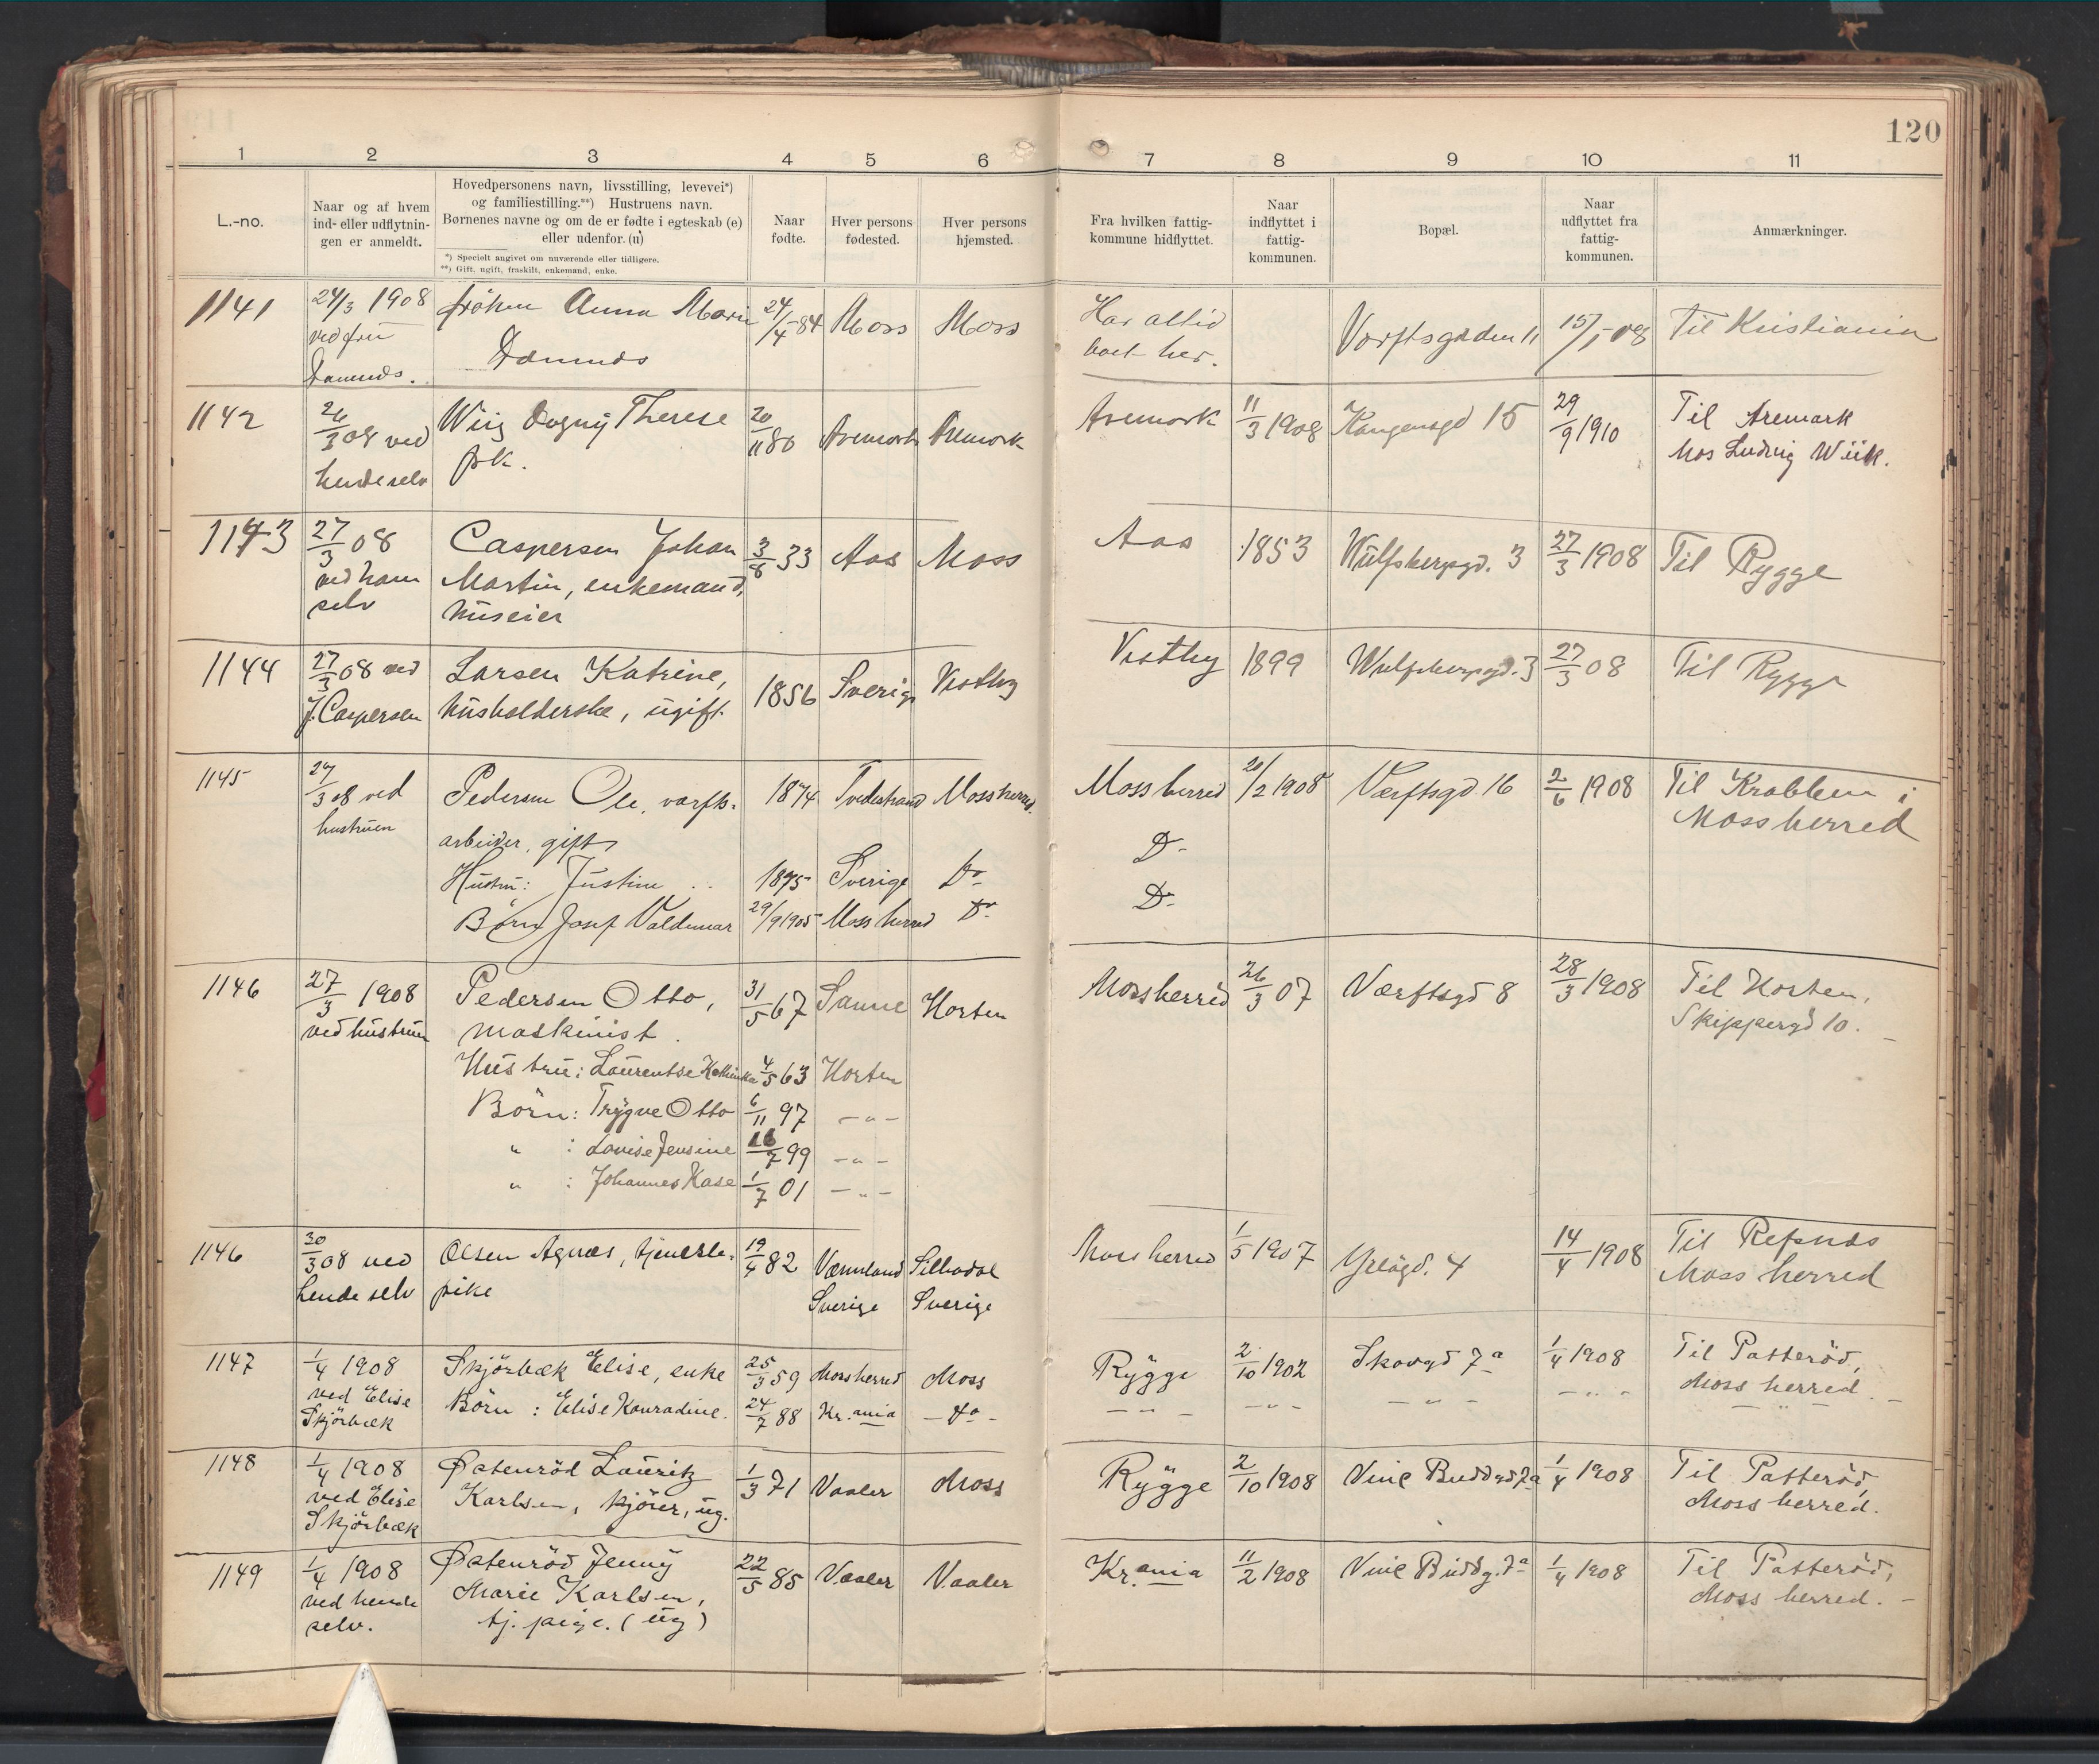 120
1 2 3 4 5 6 7 8 9 10 11
L.-no.
Naar og af hvem
ind- eller udflytnin-
gen er anmeldt.
Hovedpersonens navn, livsstilling, levevei*)
og familiestilling.**) Hustruens navn.
Børnenes navne og om de er fødte i egteskab (e)
eller udenfor. (u)
*) Specielt angivet om nuværende eller tidligere.
**) Gift, ugift, fraskilt, enkemand, enke.
Naar
fødte.
Hver persons
fødested.
Hver persons
hjemsted.
Fra hvilken fattig-
kommune hidflyttet.
Naar
indflyttet i
fattig-
kommunen.
Bopæl.
Naar
udflyttet fra
fattig-
kommunen.
Anmærkninger.
1141 24/3 1908 frøken Anna Marie 24/4-84 Moss Moss Har altid Værftsgaden 11 15/-08 Til Kristiania
ved fru boet her.
1142 26/3 08 ved Wiig Dagny Therese 20/11 80 Aremark Aremark Aremark 11/3 1908 Kongensgd 15 29/9 1910 Til Aremark
hende selv frk. Mos Ludvig Wiik.
1143 27/3 08 Caspersen Johan 3/8 33 Aas Moss Aas 1853 Wulfsbergsgd. 3 27/3 1908 Til Rygge
ved ham Martin, enkemand,
selv huseier
1144 27/3 08 ved Larsen Katrine, 1856 Sverige Vestby Vestby 1899 Wulfsbergsgd. 3 27/3 08 Til Rygge
J. Caspersen husholderske, ugift.
1145 27/3 08 ved Pedersen Ole, værfts- 1874 Tvedestrand Mossherred. Moss herred 20/2 1908 Værftsgd. 16 2/6 1908 Til Krabben i
hustruen arbeider, gift Do Moss herred
Hustru: Justine 1875 Sverige Do Do
Børn Josef Valdemar 29/9 1905 Moss herred Do
1146 27/3 1908 Pedersen Otto, 31/5 67 Sanne Horten Mossherred 26/3 07 Værftsgd 8 28/3 1908 Til Horten,
ved hustruen maskinist. Skippergd 10.
Hustru: Laurentse Kathinka 4/5 63 Horten
Börn: Trygve Otto 6/11 97 - " -
" : Lovise Jensine 16/7 99 - " -
" : Johannes Kase 1/7 01 - " -
1146 30/3 08 ved Olsen Agnes, tjeneste- 19/4 82 Værmland Sillbodal Moss herred 1/5 1907 4 14/4 1908 Til Refsnes
hende selv pike Sverige Sverige Moss herred
1147 1/4 1908 Skjörbæk Elise, enke 25/3 59 Moss herred Moss Rygge 2/10 1902 Skovgd 7a 1/4 1908 Til Patteröd,
ved Elise Börn : Elise Konradine. 24/7 88 Kr.ania - do - - " - - " - - " - - " - Moss herred.
Skjörbæk - " -
1148 1/4 1908 Østenröd Lauritz 1/3 71 Vaaler Moss Rygge 2/10 1908 Vine Buddgd 7a 1/4 1908 Til Patteröd,
ved Elise Karlsen, kjörer, ug. Moss herred.
Skjörbæk
1149 1/4 1908 Østenröd Jenny 22/5 85 Vaaler Vaaler Kr.ania 11/2 1908 Vine Buddg. 7a 1/4 1908 Til Patteröd,
ved hende Marie Karlsen, Moss herred. -
selv. tj. pige. (ug)